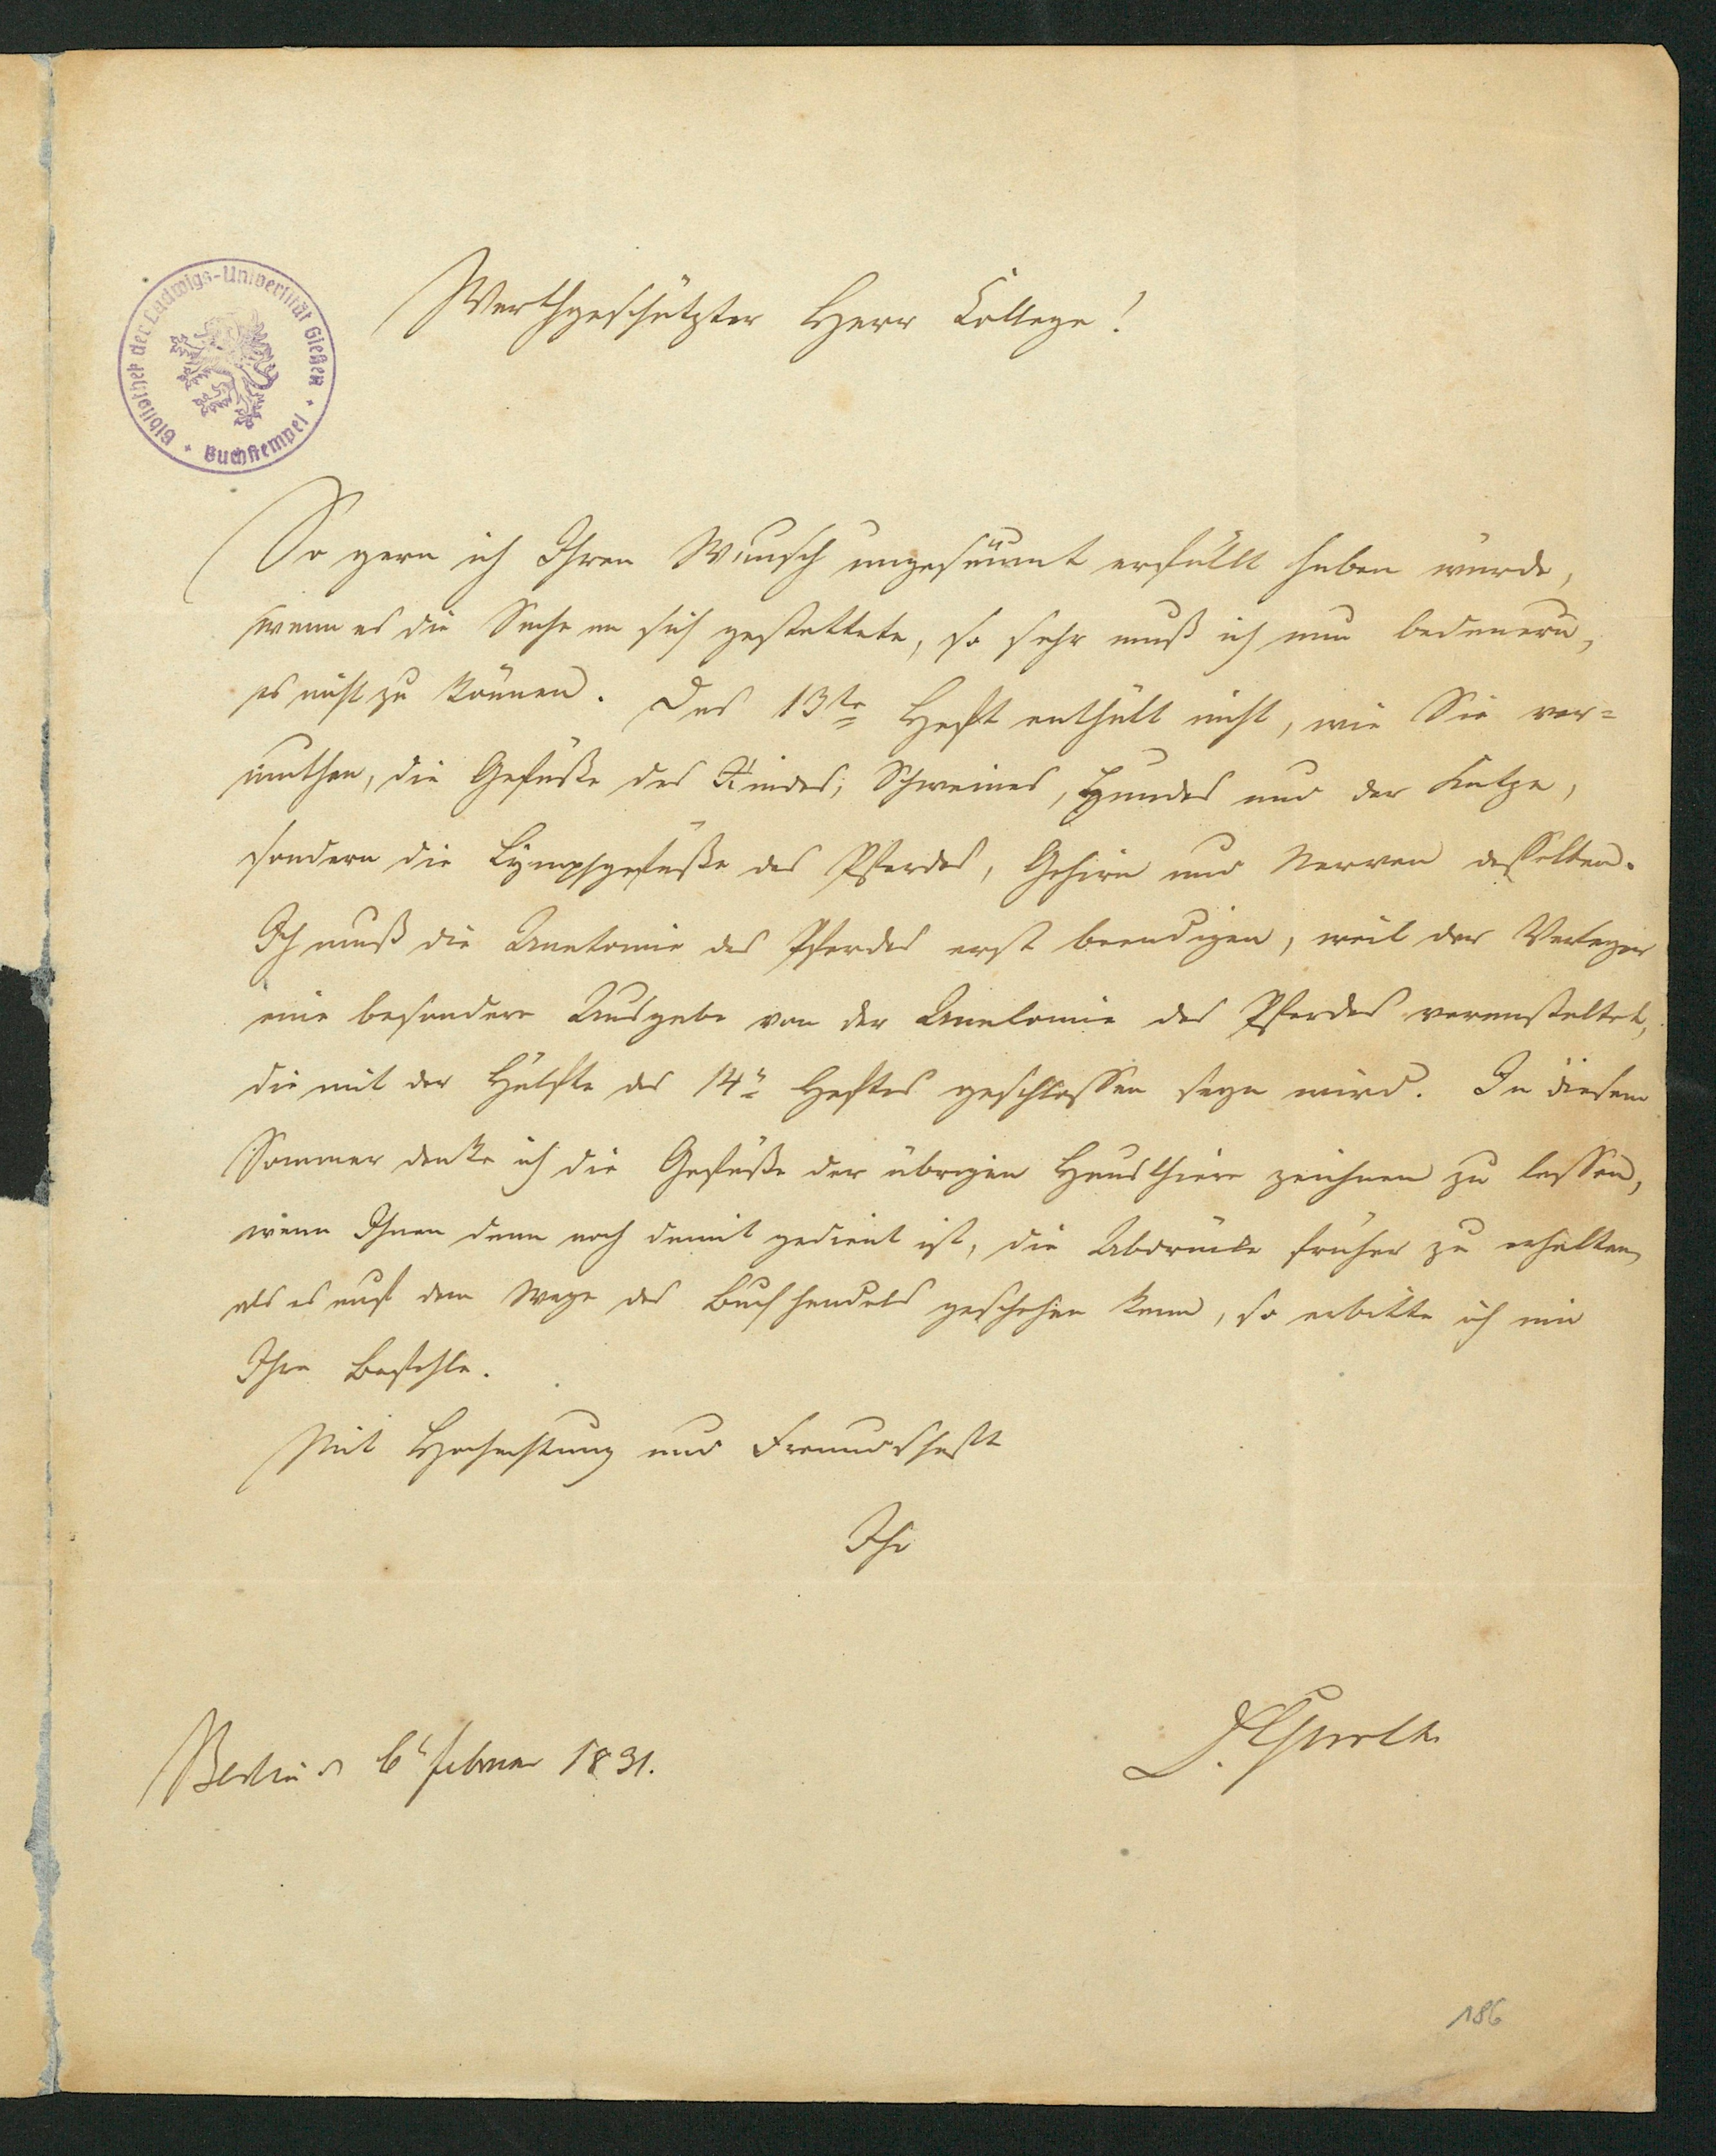 Bibliothek der Ludwigs-Universität Gießen · Buchstempel ·
Werthgeschätzter Herr College!
So gern ich Ihren Wunsch ungesäumt erfüllt haben würde,
wenn es die Sache an sich gestattete, so sehr muß ich nun bedauern,
es nicht zu können. Das 13te Heft enthält nicht, wie Sie ver=
muthen, die Gefäße des Rindes, Schweines, Hundes und der Katze,
sondern die Lÿmphgefäße des Pferdes, Gehirn und Nerven desselben.
Ich muß die Anatomie des Pferdes erst beendigen, weil der Verleger
eine besondere Ausgabe von der Anatomie des Pferdes veranstaltet,
die mit der Hälfte des 14n Heftes geschlossen seyn wird. In diesem
Sommer denke ich die Gefäße der übrigen Hausthiere zeichnen zu lassen,
wenn Ihnen dann noch damit gedient ist, die Abdrücke früher zu erhalten,
als es auf dem Wege des Buchhandels geschehen kann, so erbitte ich mir
Ihre Befehle.
Mit Hochachtung und Freundschaft
Ihr
Berlin d 6n Februar 1831.
EGurlt
186